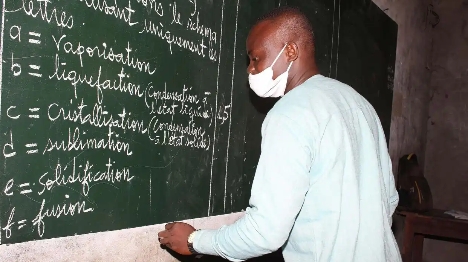 lettres. utilisant uniquement les
le schema
a = Vaporisation
b = liquefaction (Condensation à l'état liquide)
c = Cristallisation (Condensation à l'état solide)
1,5
d = sublimation
e = Solidification
f = fusion